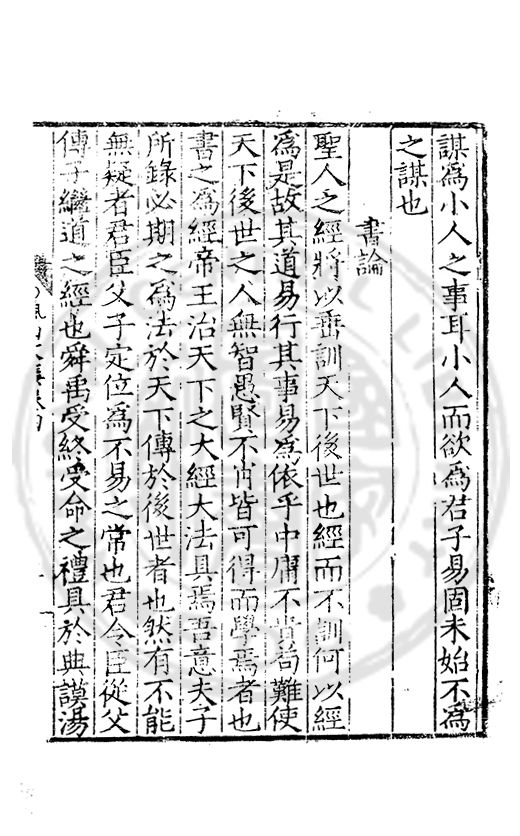 謀為小人之事耳小人而欲為君子易固未始不為
之謀也
書論
聖人之經將以垂訓天下後世也經而不訓何以經
為是故其道易行其事易為依乎中庸不貴苟難使
天下後世之人無智愚賢不肖皆可得而學焉者也
書之為經帝王治天下之大經大法具焉吾意夫子
所錄必期之為法於天下傳於後世者也然有不能
無疑者君臣父子定位為不易之常也君令臣從父
傳子繼道之經也舜禹受終受命之禮具於典謨湯